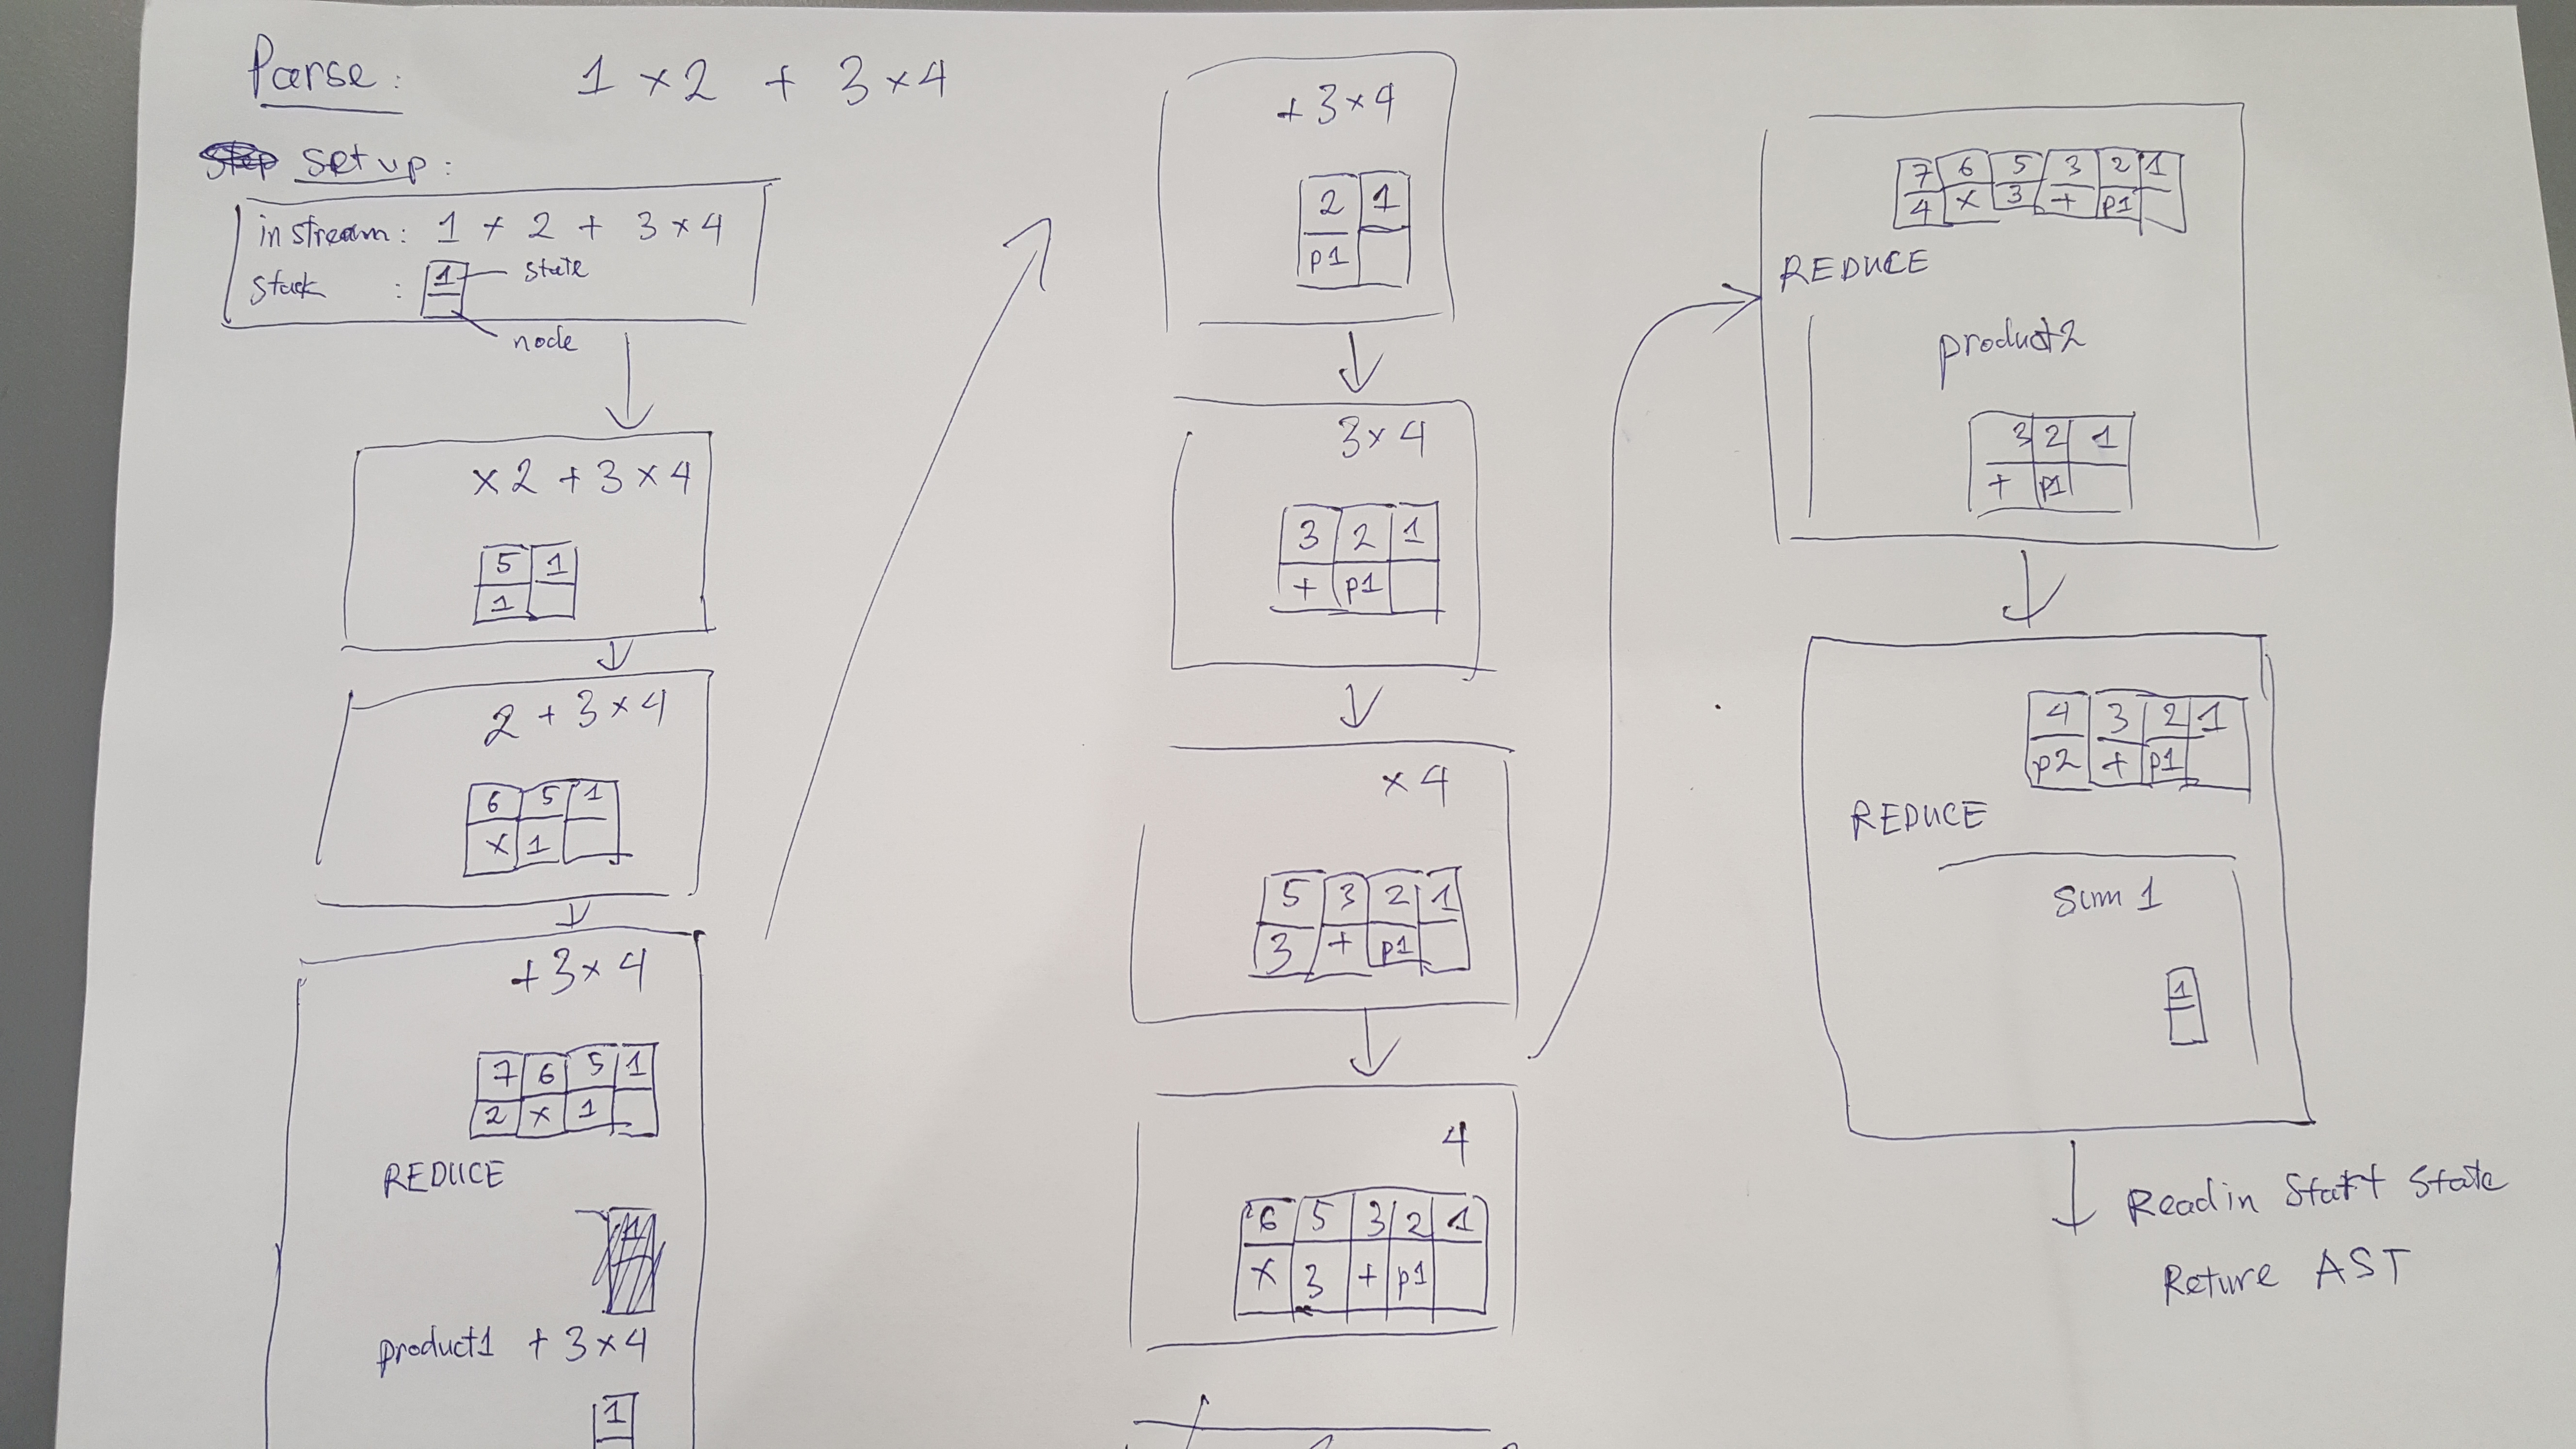 Parse: 1 × 2 + 3 × 4
set up:
in stream: 1 × 2 + 3 × 4
stack : 1 state
node
× 2 + 3 × 4
5 1
1
2 + 3 × 4
6 5 1
× 1
+ 3 × 4
7 6 5 1
2 × 1
REDUCE
product1 + 3 × 4
1
+ 3 × 4
2 1
p1
3 × 4
3 2 1
+ p1
× 4
5 3 2 1
3 + p1
4
6 5 3 2 1
× 3 + p1
7 6 5 3 2 1
4 × 3 + p1
REDUCE
product2
3 2 1
+ p1
4 3 2 1
p2 + p1
REDUCE
Sum 1
1
Read in Start State
Reture AST